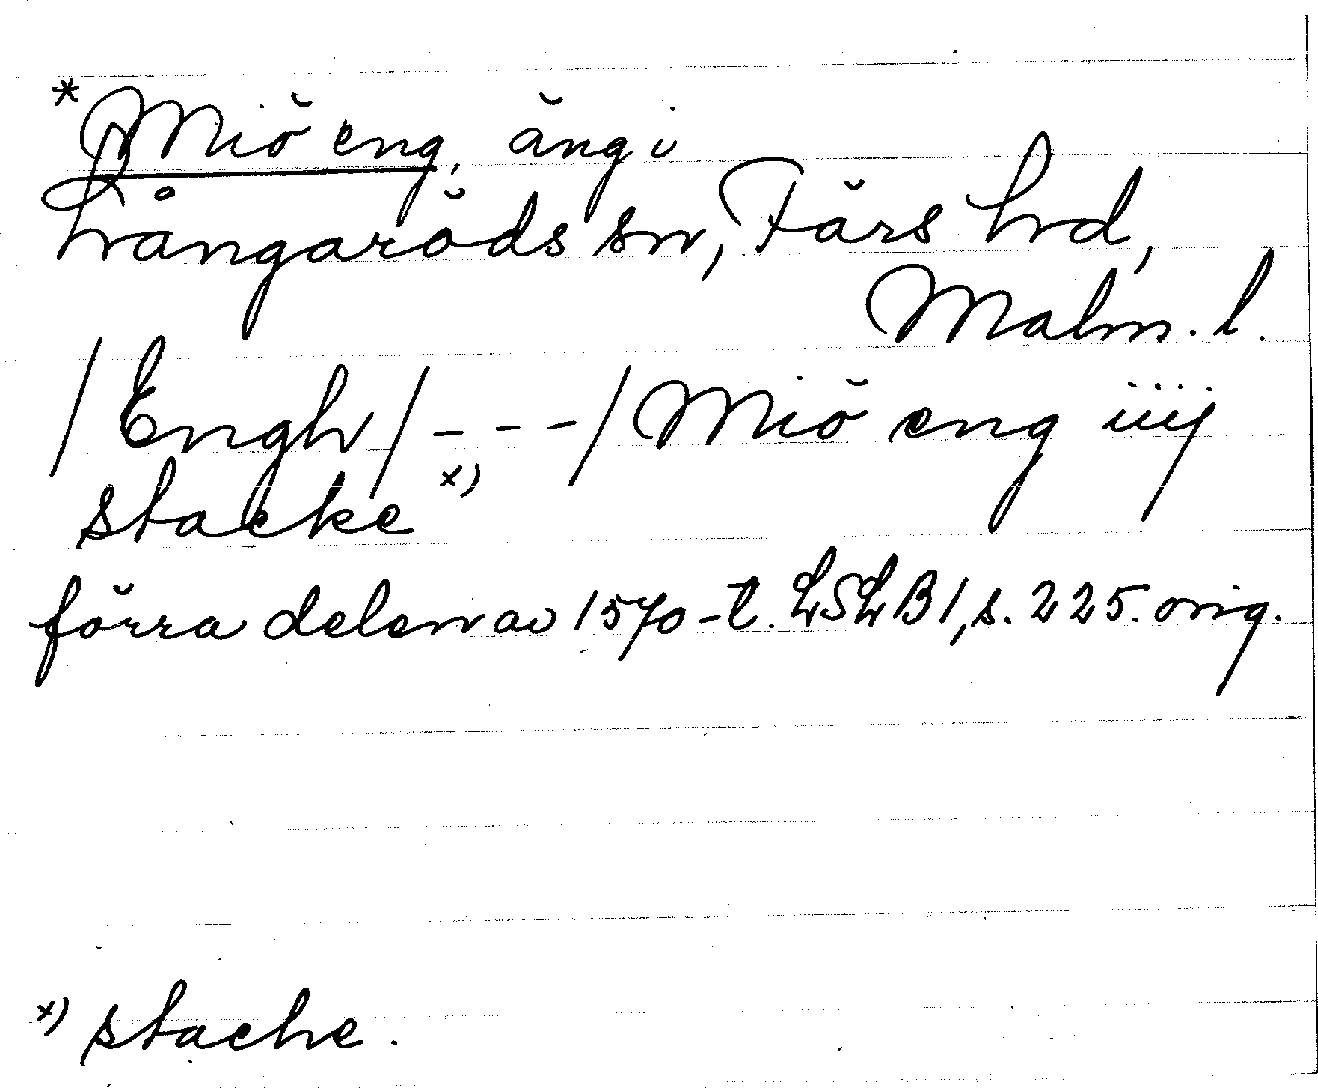 *Miö eng, äng i
Långaröds sn, Färs hd,
Malm. l.
/Engh/ - - - / Miö eng iiij
stacke x)
förra delen av 1570-t. LSLB1, s. 225. orig.
x) stache.